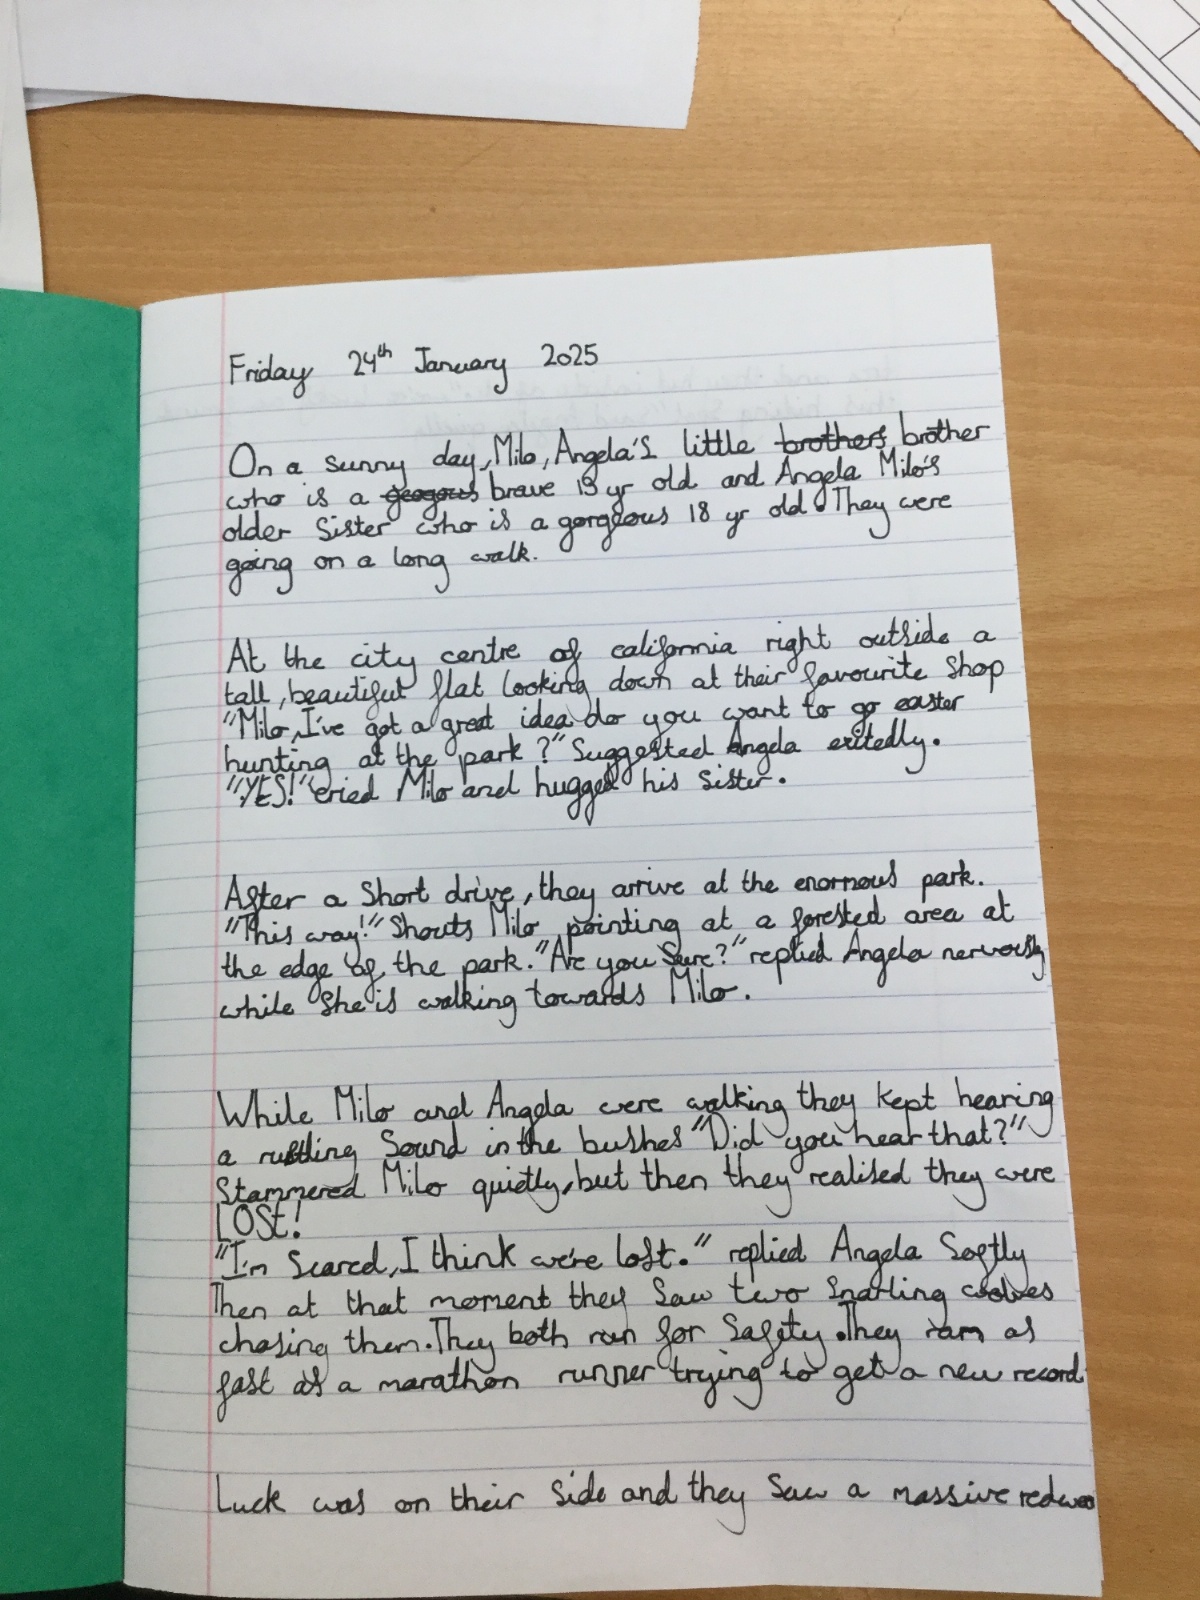 Friday 24th January 2025
On a sunny day, Milo, Angela's little brothers brother
who is a geogous brave 13 yr old and Angela Milo's
older Sister who is a gorgeous 18 yr old. They were
going on a long walk.
At the city centre of california right outside a
tall, beautiful flat looking down at their favourite Shop
"Milo, I've got a great idea do you want to go easter
hunting at the park?" Suggested Angela exitedly.
"YES!" cried Milo and hugged his Sister.
After a Short drive, they arrive at the enormous park.
"This way!" Shouts Milo pointing at a forested area at
the edge of the park. "Are you Sure?" replied Angela nervously
while She is walking towards Milo.
While Milo and Angela were walking they kept hearing
a rustling Sound in the bushes "Did you hear that?"
Stammered Milo quietly, but then they realised they were
LOSt!
"I'm Scared, I think we're lost." replied Angela Softly
Then at that moment they Saw two Snarling wolves
chasing them. They both run for Safety. They ram as
fast as a marathon runner trying to get a new record
Luck was on their Side and they Saw a massive redwoo